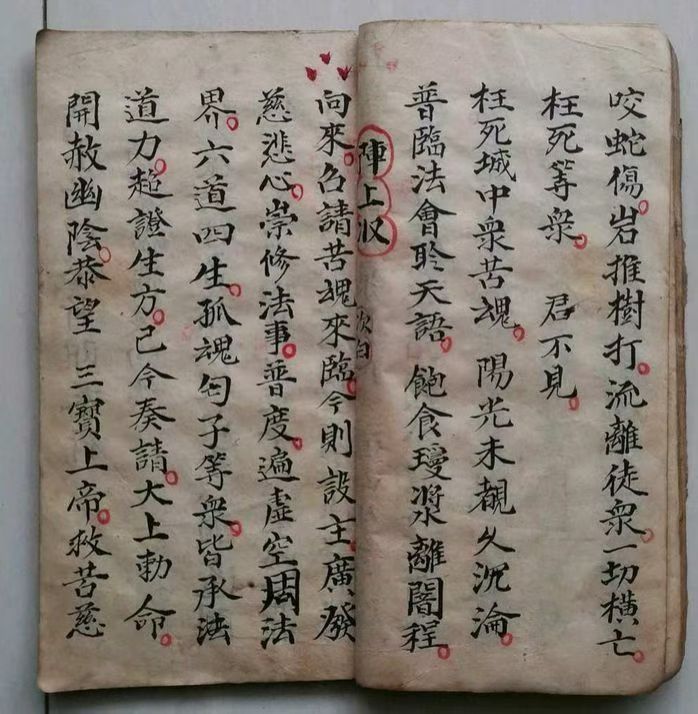 咬蛇傷。岩推樹打。流離徒衆。一切橫亡。
枉死等衆。 君不見。
枉死城中衆苦魂。陽光未覩久沉淪。
普臨法會聆天語。飽食瓊漿離闇程。
陣上収 次白
向來。召請苦魂來臨。今則設主。廣發
慈悲心。崇修法事。普度。遍虛空周法
界。六道四生。孤魂匄子等衆。皆承法
道力。超證生方。已今奏請。大上勅命。
開赦幽陰。恭望 三寶上帝。救苦慈